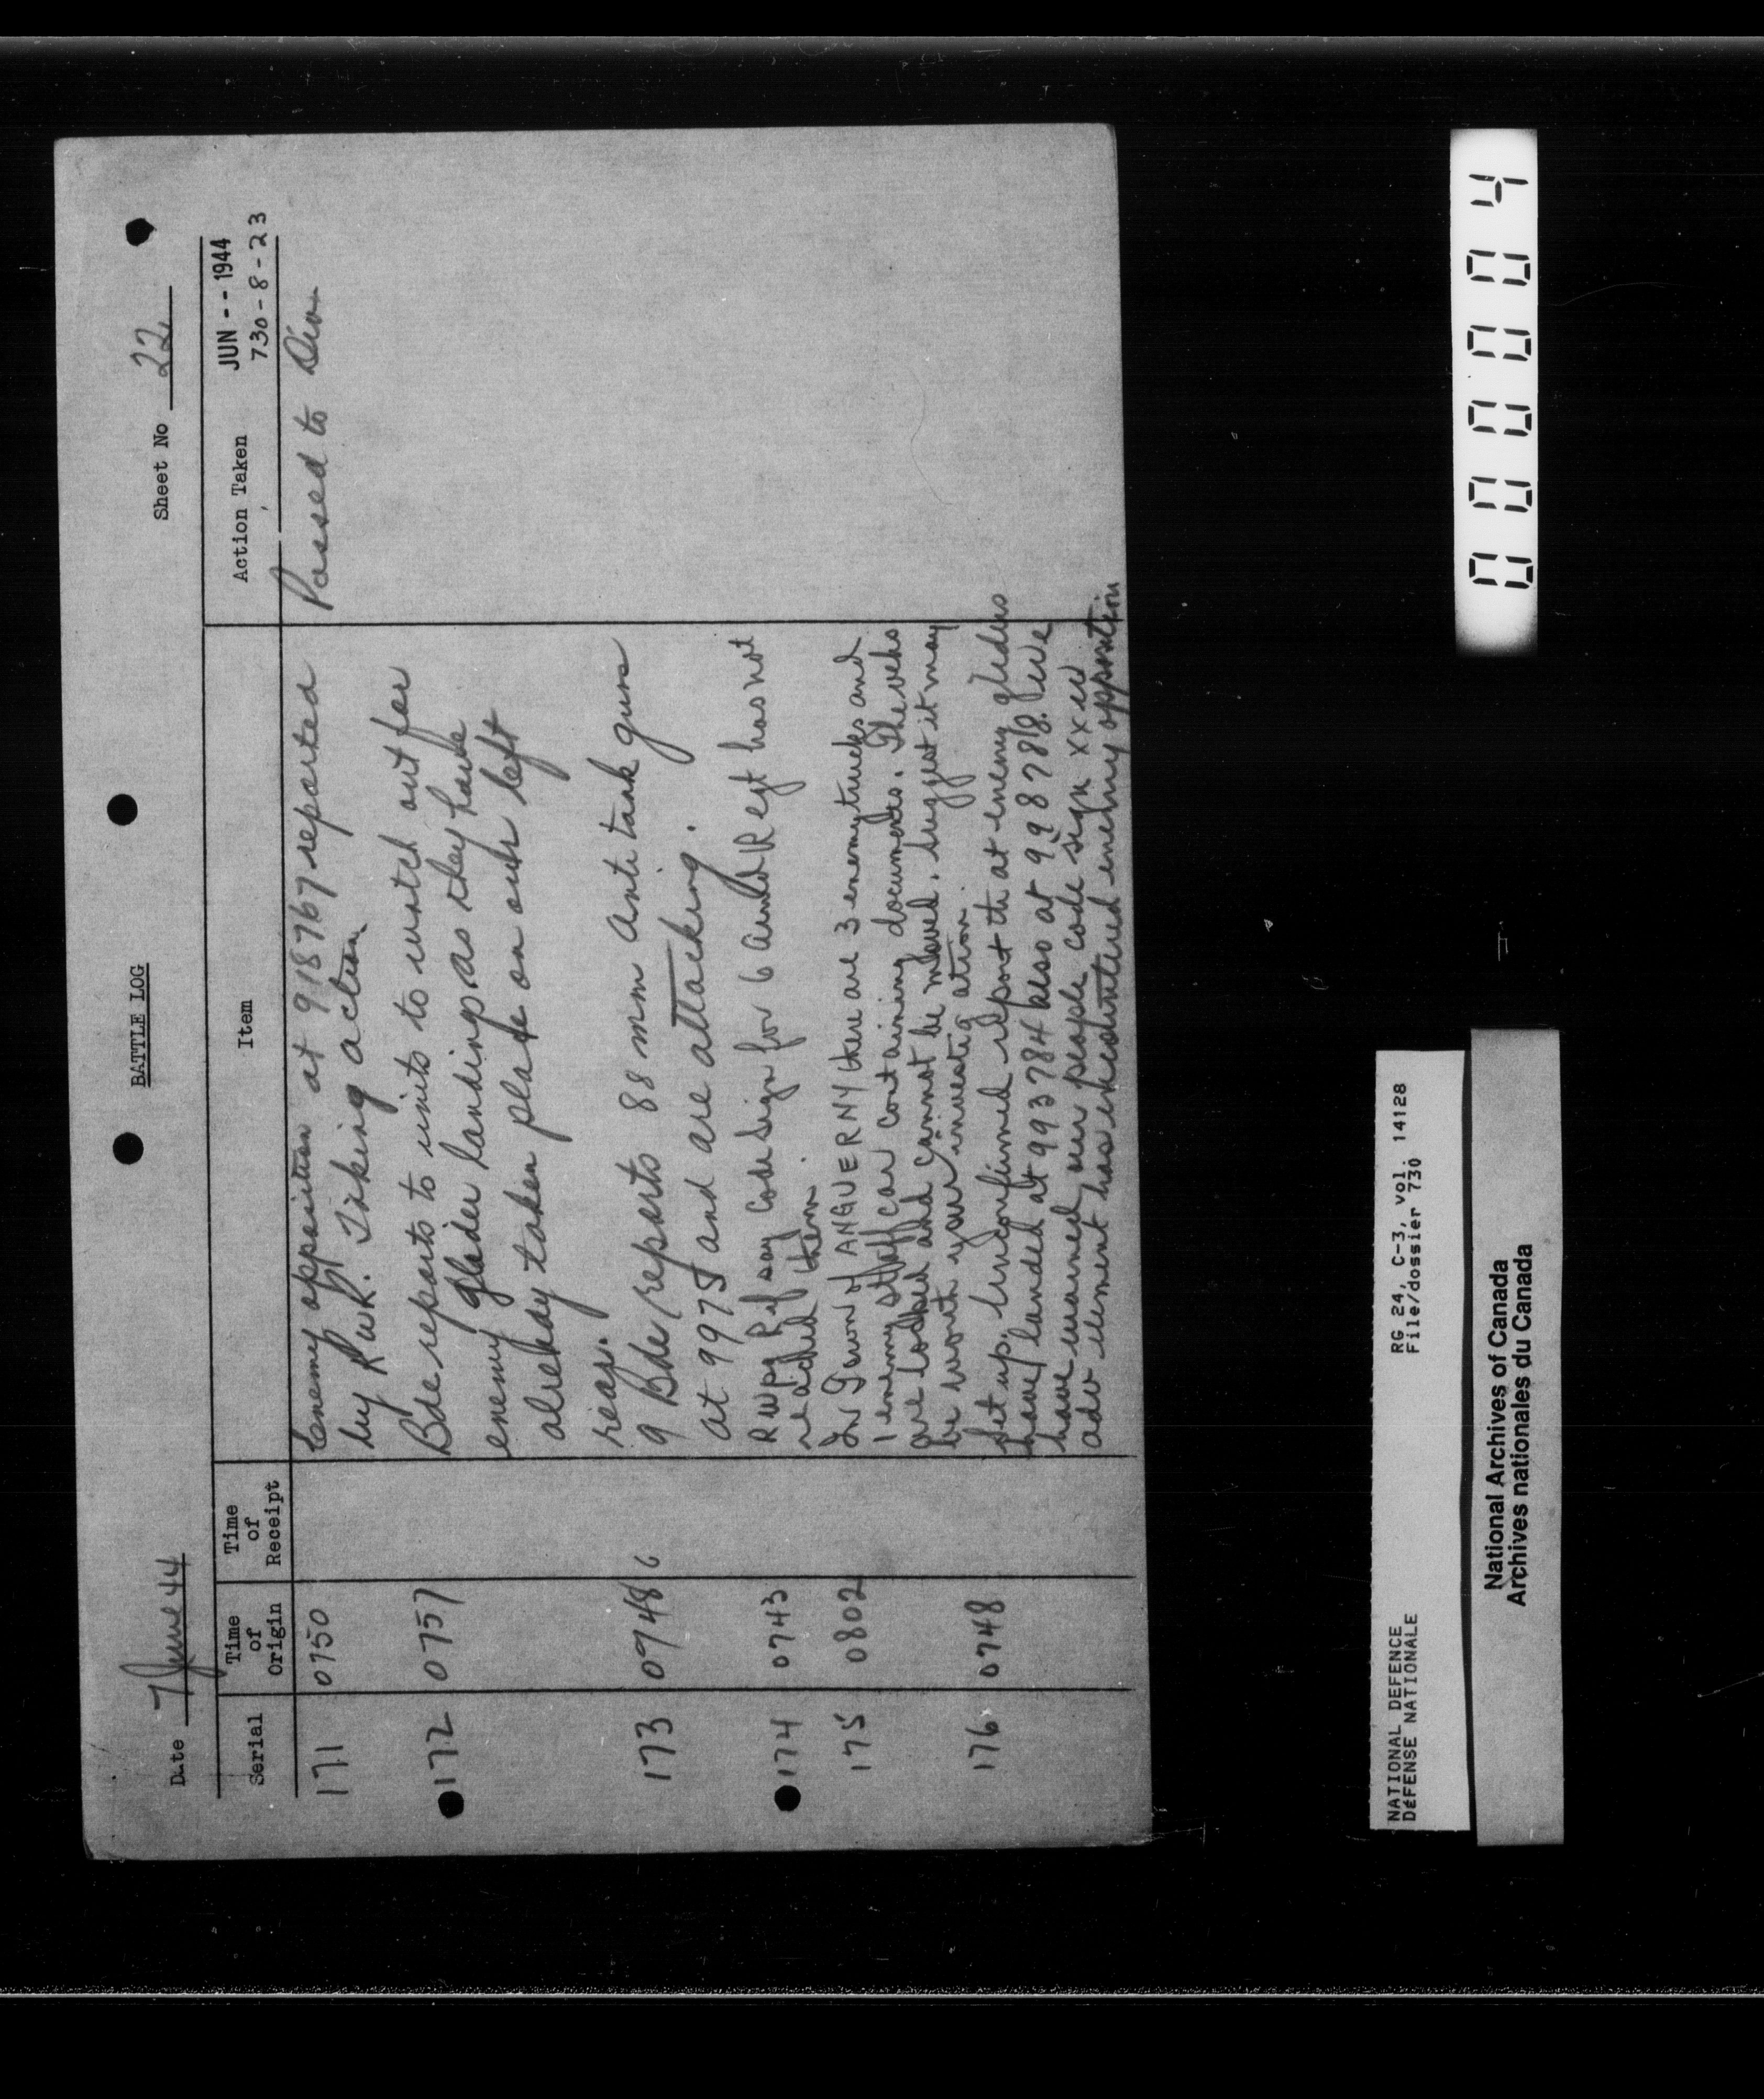 BATTLE LOG
Date 7 June 44
Sheet No 22
Serial
Time of Origin
Time of Receipt
Item
Action Taken
JUN - - 1944
730-8-23
171 0750 Enemy opposition at 918767 reported Passed to Div
by RWR. Taking action
172 0757 Bde reports to units to watch out for
enemy glider landings as they have
already taken place on our left
rear.
173 0748 6 9 Bde reports 88 mm anti tank guns
at 9975 and are attacking.
174 0743 RWpg Rif say code sign for 6 Armd Regt has not
reached them.
175 0802 In Town of ANGUERNY there are 3 enemy trucks and
1 enemy staff car containing documents. The vehs
are locked and cannot be moved. Suggest it may
be worth your investigation.
176 0748 Set up. Unconfirmed report that enemy gliders
have landed at 993784 also at 998788. We
have warned our people code sign xx
adv element has encountered enemy opposition
00004
NATIONAL DEFENCE
DÉFENSE NATIONALE
RG 24, C-3, vol. 14128
File/dossier 730
National Archives of Canada
Archives nationales du Canada